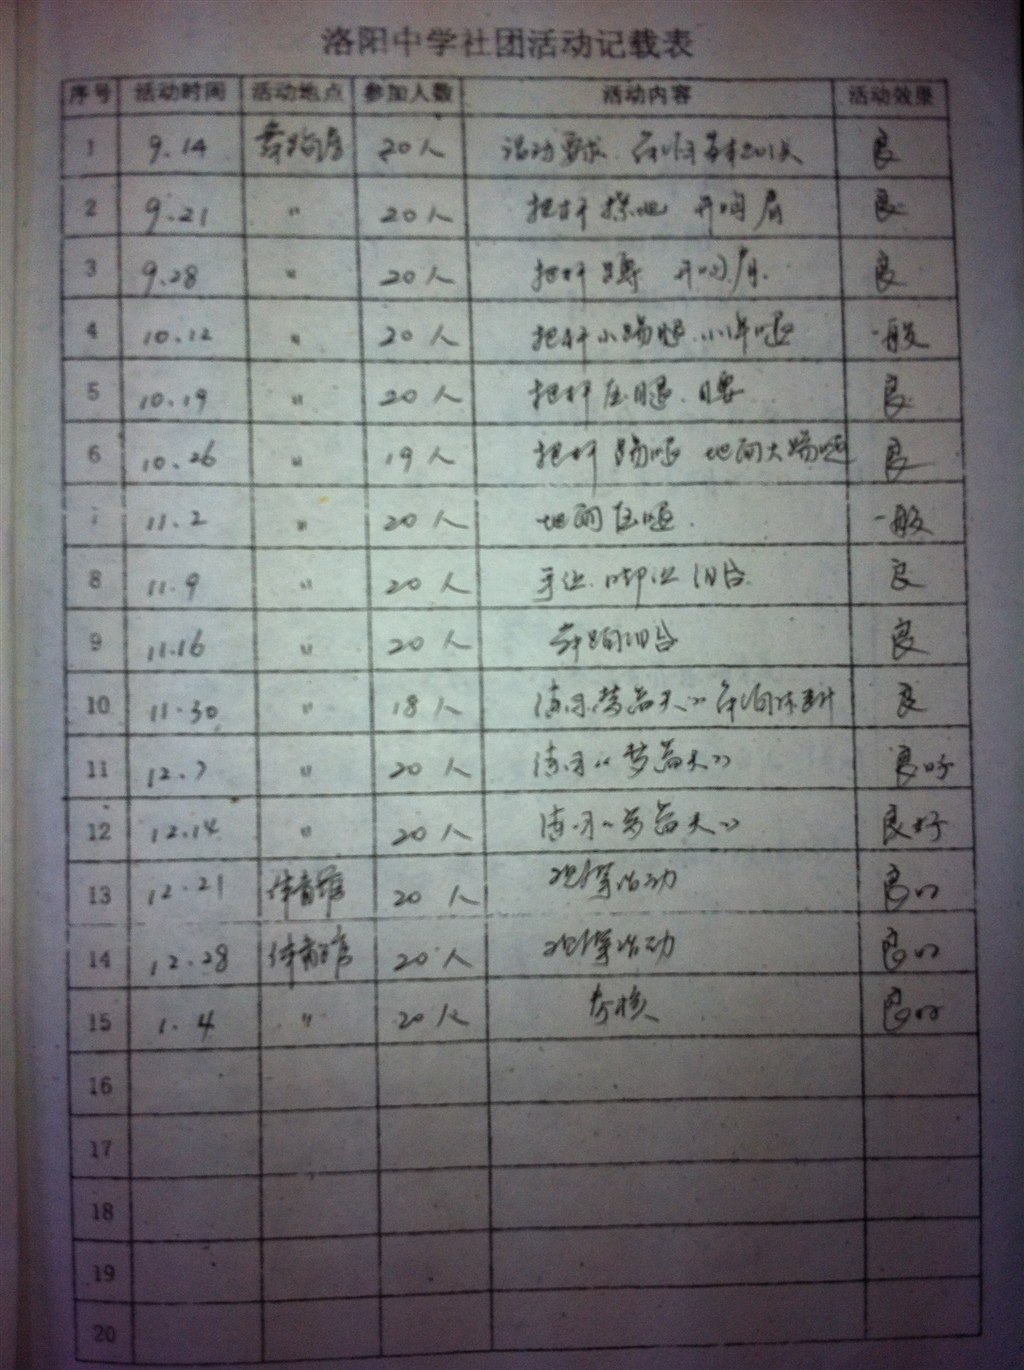 洛阳中学社团活动记载表
序号 活动时间 活动地点 参加人数 活动内容 活动效果
1 9.14 舞蹈房 20人 活动要求. 舞蹈基本 良
2 9.21 〃 20人 把杆擦地 开胸肩 良
3 9.28 〃 20人 把杆蹲 开胸肩. 良
4 10.12 〃 20人 把杆小踢腿. 小弹腿 一般
5 10.19 〃 20人 把杆压腿. 腰 良
6 10.26 〃 19人 把杆踢腿 地面大踢腿 良
7 11.2 〃 20人 地面压腿. 一般
8 11.9 〃 20人 手位. 脚位组合. 良
9 11.16 〃 20人 舞蹈组合 良
10 11.30 〃 18人 舞蹈 良
11 12.7 〃 20人 良好
12 12.14 〃 20人 良好
13 12.21 体育馆 20人 观摩活动 良
14 12.28 体育馆 20人 观摩活动 良
15 1.4 〃 20人 考核 良
16
17
18
19
20